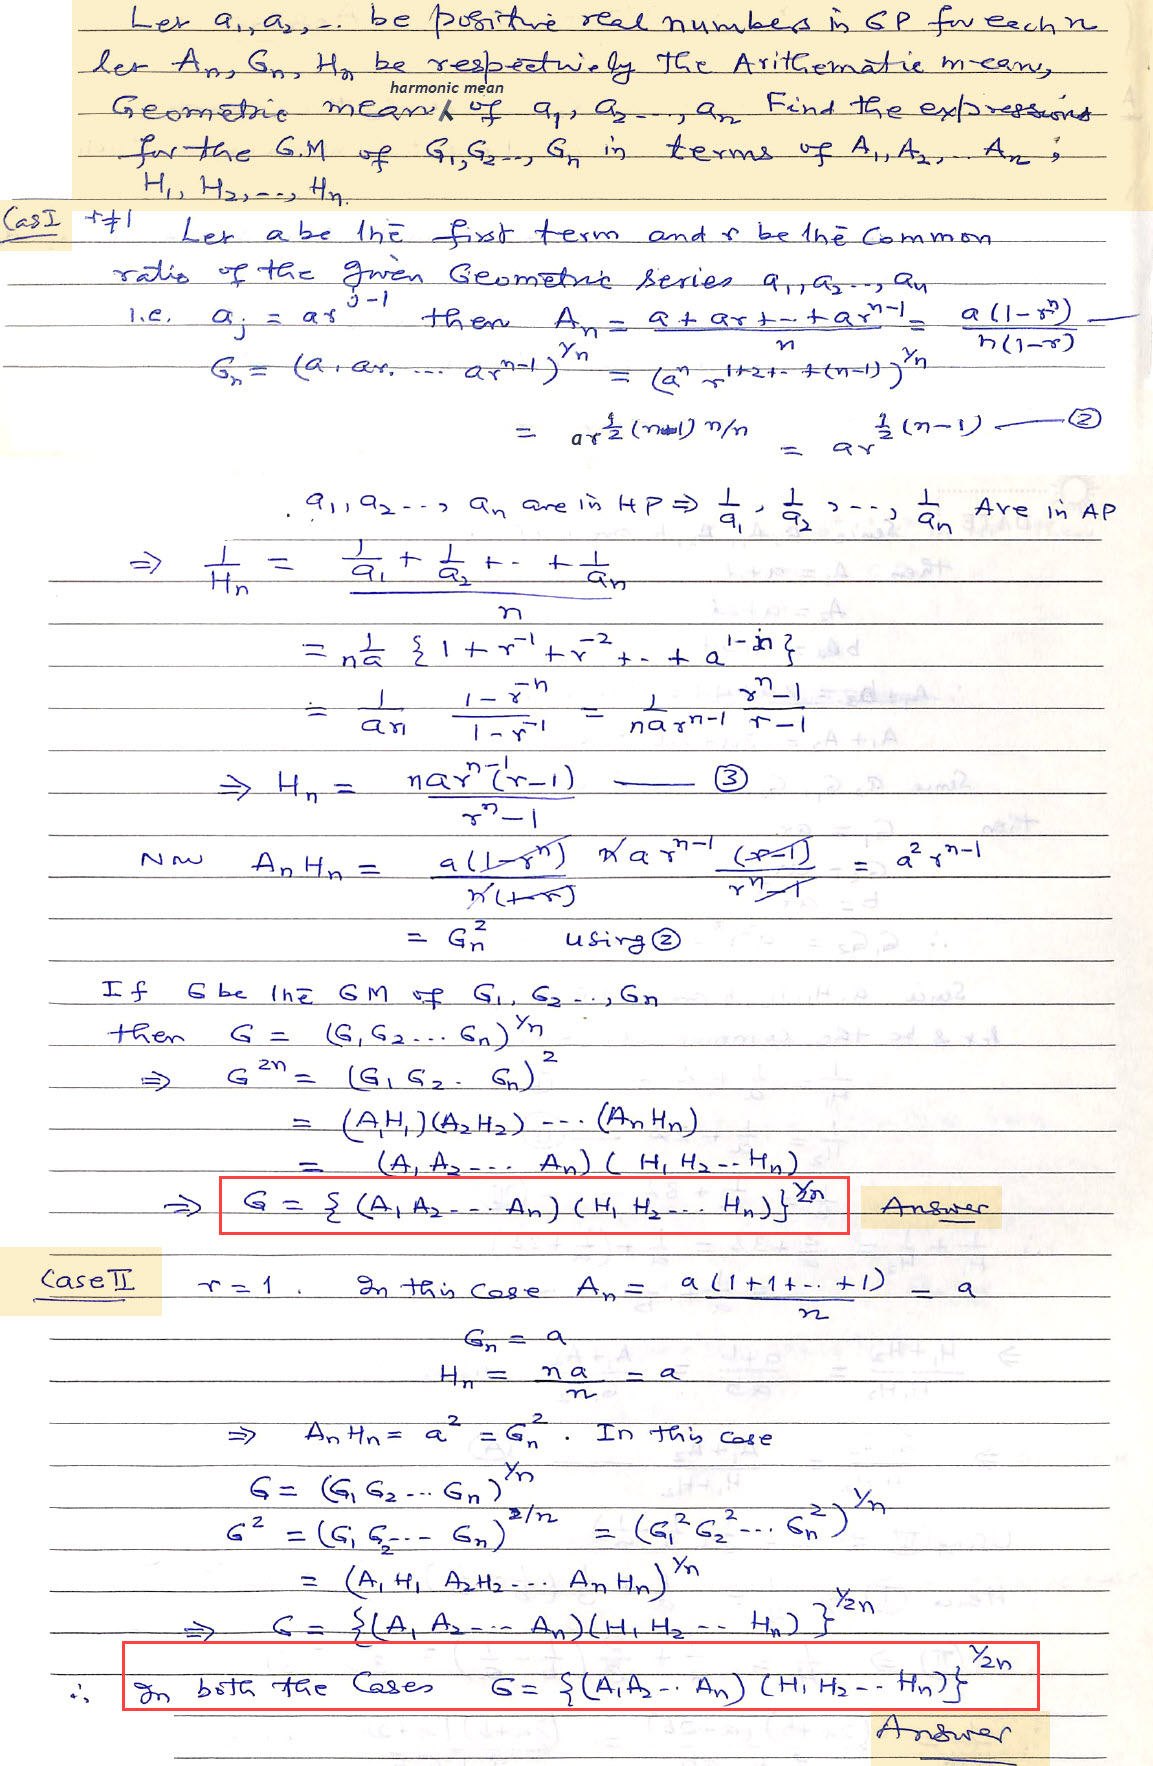 Let a₁, a₂, ... be positive real numbers in GP for each n
let Aₙ, Gₙ, Hₙ be respectively the Arithematic mean,
harmonic mean
Geometric mean ⁁ of a₁, a₂ ..., aₙ Find the expressions
for the G.M of G₁, G₂ .., Gₙ in terms of A₁, A₂, .. Aₙ ;
H₁, H₂, ..., Hₙ.
Cas I r≠1 Let a be the first term and r be the Common
ratio of the given Geometric Series a₁, a₂ ..., aₙ
i.e. aⱼ = ar^(j-1) then Aₙ = (a + ar + -- + ar^(n-1))/n = a(1-rⁿ)/(n(1-r)) —
Gₙ = (a. ar. ... ar^(n-1))^(1/n) = (aⁿ r^(1+2+..+(n-1)))^(1/n)
= ar^(½(n-1) n/n) = ar^(½(n-1)) —— ②
. a₁, a₂ ..., aₙ are in HP ⇒ 1/a₁, 1/a₂, ..., 1/aₙ Are in AP
⇒ 1/Hₙ = (1/a₁ + 1/a₂ + .. + 1/aₙ)/n
= 1/(na) {1 + r⁻¹ + r⁻² + .. + a^(1-n)}
= 1/(an) (1-r⁻ⁿ)/(1-r⁻¹) = 1/(nar^(n-1)) (rⁿ-1)/(r-1)
⇒ Hₙ = nar^(n-1)(r-1)/(rⁿ-1) —— ③
Now AₙHₙ = a(1-rⁿ)/(n(1-r)) n a r^(n-1) (r-1)/(rⁿ-1) = a² r^(n-1)
= Gₙ² using ②
If G be the GM of G₁, G₂ ..., Gₙ
then G = (G₁ G₂ ... Gₙ)^(1/n)
⇒ G^(2n) = (G₁ G₂ . Gₙ)²
= (A₁H₁)(A₂H₂) ---- (AₙHₙ)
= (A₁ A₂ ---- Aₙ) ( H₁ H₂ -- Hₙ)
⇒ G = {(A₁ A₂ ---- Aₙ) (H₁ H₂ --- Hₙ)}^(1/2n) Answer
Case II r = 1 . In this Case Aₙ = a(1+1+..+1)/n = a
Gₙ = a
Hₙ = na/n = a
⇒ AₙHₙ = a² = Gₙ² . In this case
G = (G₁ G₂ ... Gₙ)^(1/n)
G² = (G₁ G₂ ... Gₙ)^(2/n) = (G₁² G₂² ... Gₙ²)^(1/n)
= (A₁ H₁ A₂H₂ ... AₙHₙ)^(1/n)
⇒ G = {(A₁ A₂ --- Aₙ)(H₁ H₂ -- Hₙ)}^(1/2n)
∴ In both the Cases G = {(A₁A₂ .. Aₙ) (H₁ H₂ -- Hₙ)}^(1/2n)
Answer